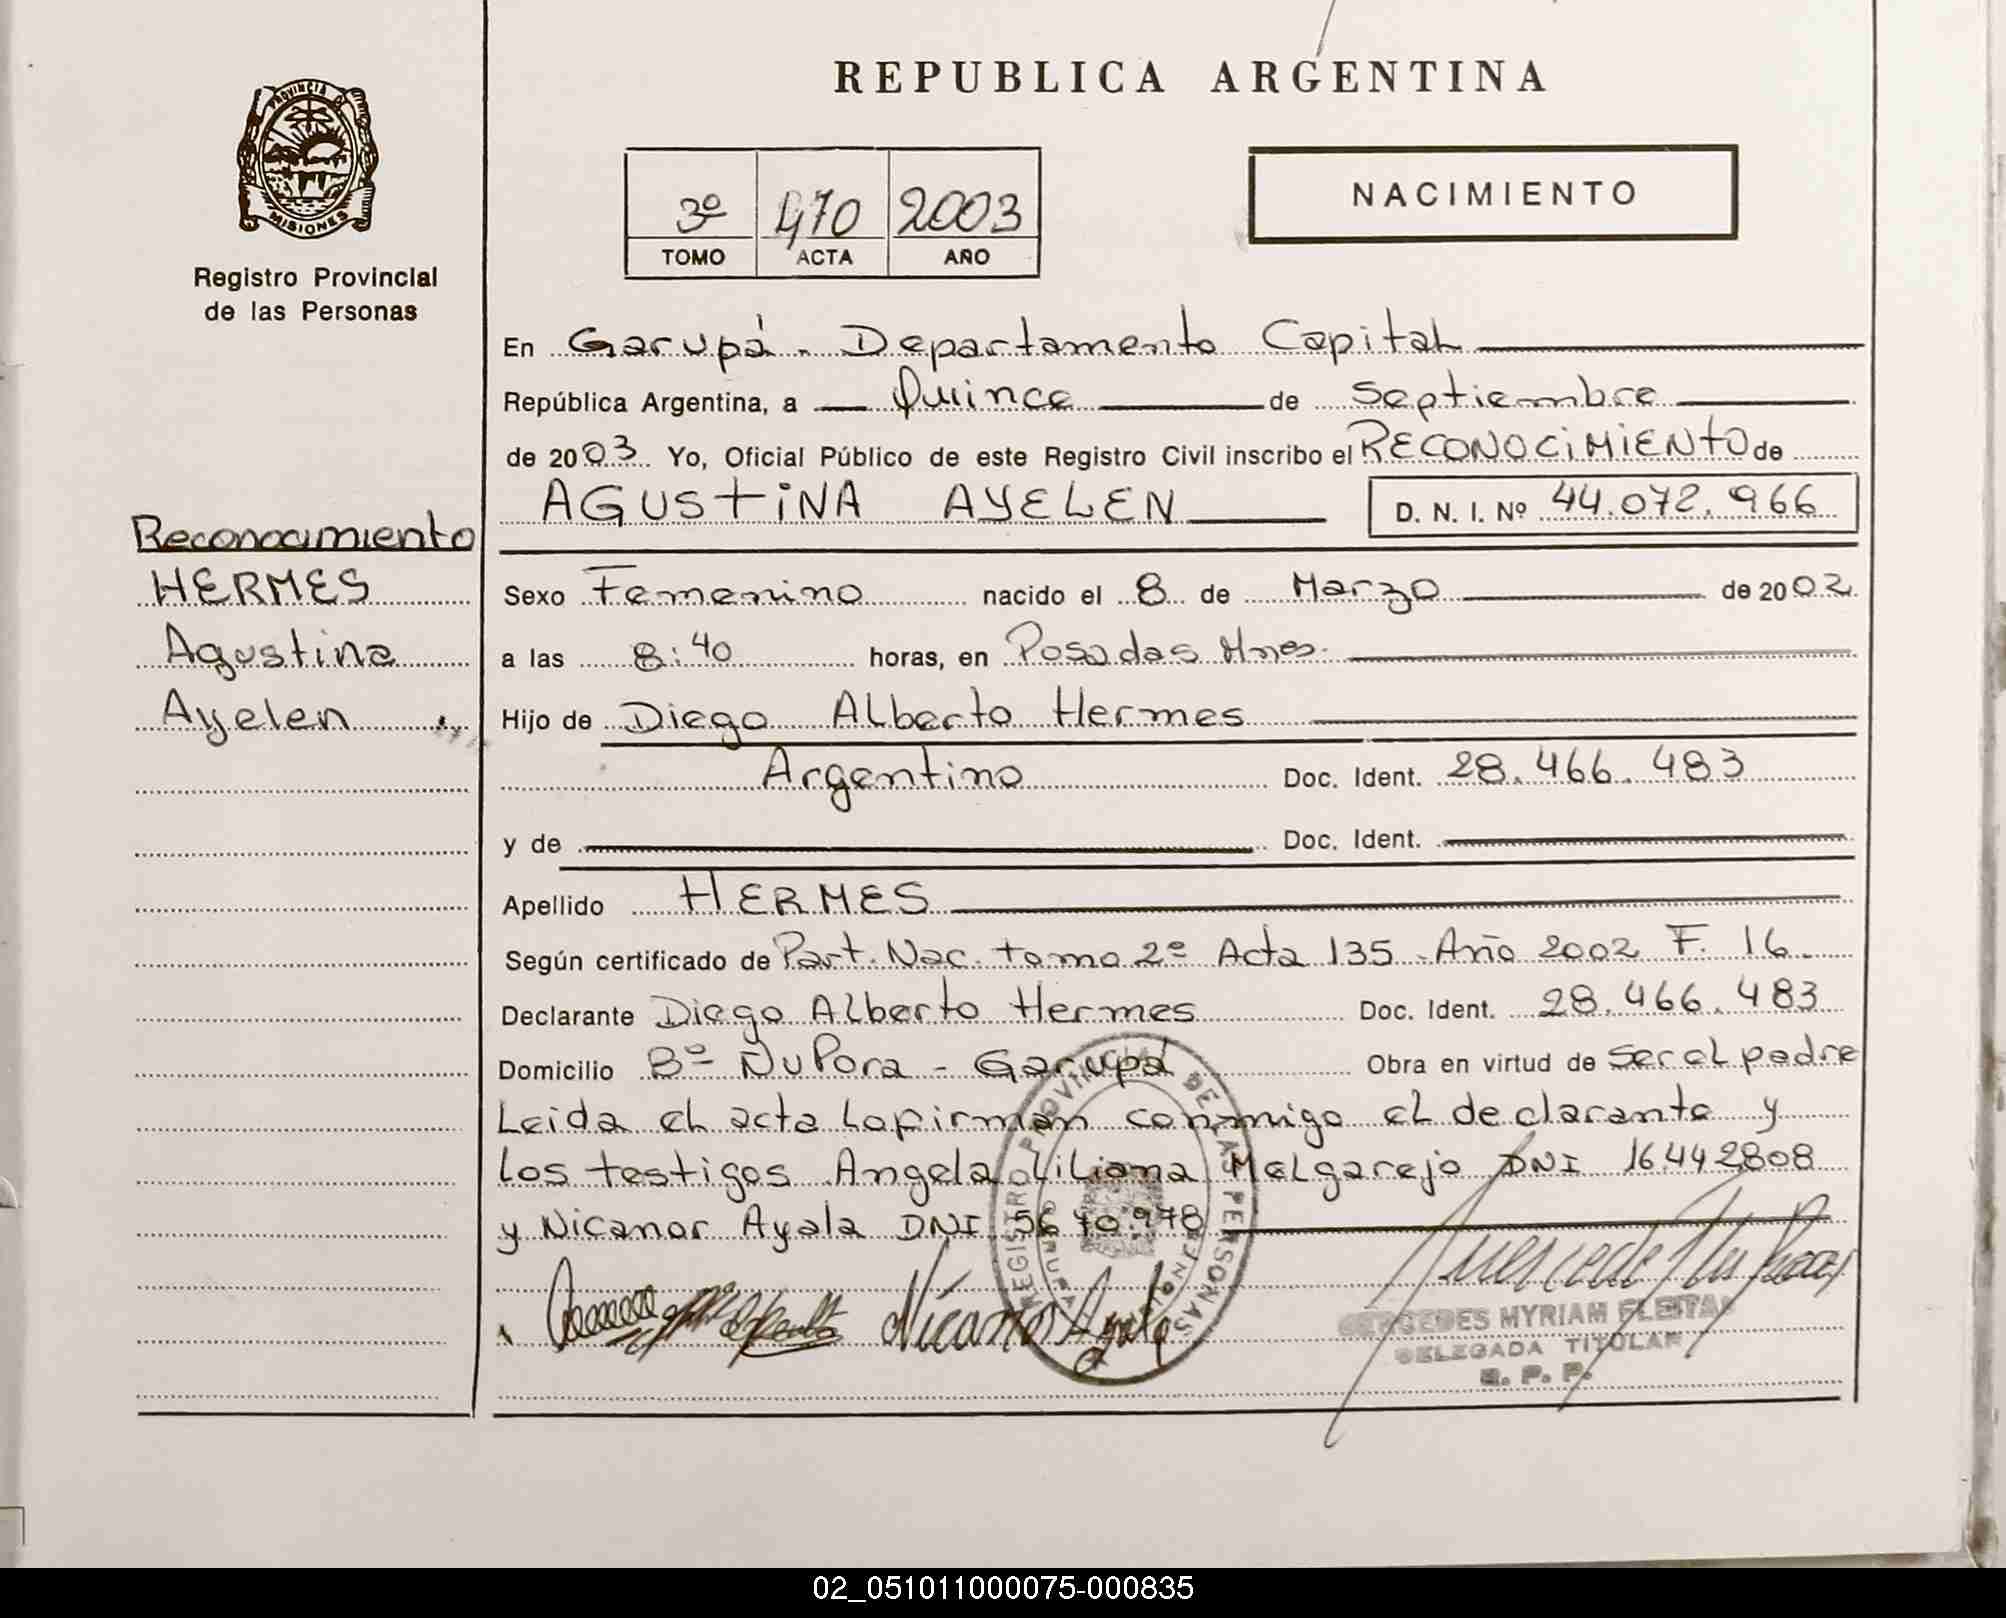 REPUBLICA ARGENTINA
PROVINCIA DE
MISIONES
Registro Provincial
de las Personas
3º 470 2003
TOMO ACTA AÑO
NACIMIENTO
En Garupá - Departamento Capital
República Argentina, a Quince de Septiembre
de 2003 Yo, Oficial Público de este Registro Civil inscribo el RECONOCIMIENTO de
AGUSTINA AYELEN D. N. I. Nº 44.072.966
Reconocimiento
HERMES
Agustina
Ayelen
Sexo Femenino nacido el 8 de Marzo de 2002
a las 8:40 horas, en Posadas Mnes.
Hijo de Diego Alberto Hermes
Argentino Doc. Ident. 28.466.483
y de Doc. Ident.
Apellido HERMES
Según certificado de Part. Nac. tomo 2º Acta 135 Año 2002 F. 16
Declarante Diego Alberto Hermes Doc. Ident. 28.466.483
Domicilio Bº ÑuPora - Garupá Obra en virtud de ser el padre
Leida el acta la firman conmigo el declarante y
los testigos Angela Liliana Melgarejo DNI 16.442808
y Nicanor Ayala DNI 5640.978
REGISTRO PROVINCIAL DE LAS PERSONAS
Nicanor Ayala
MERCEDES MYRIAM FLEITAS
DELEGADA TITULAR
R. P. P.
02_051011000075-000835